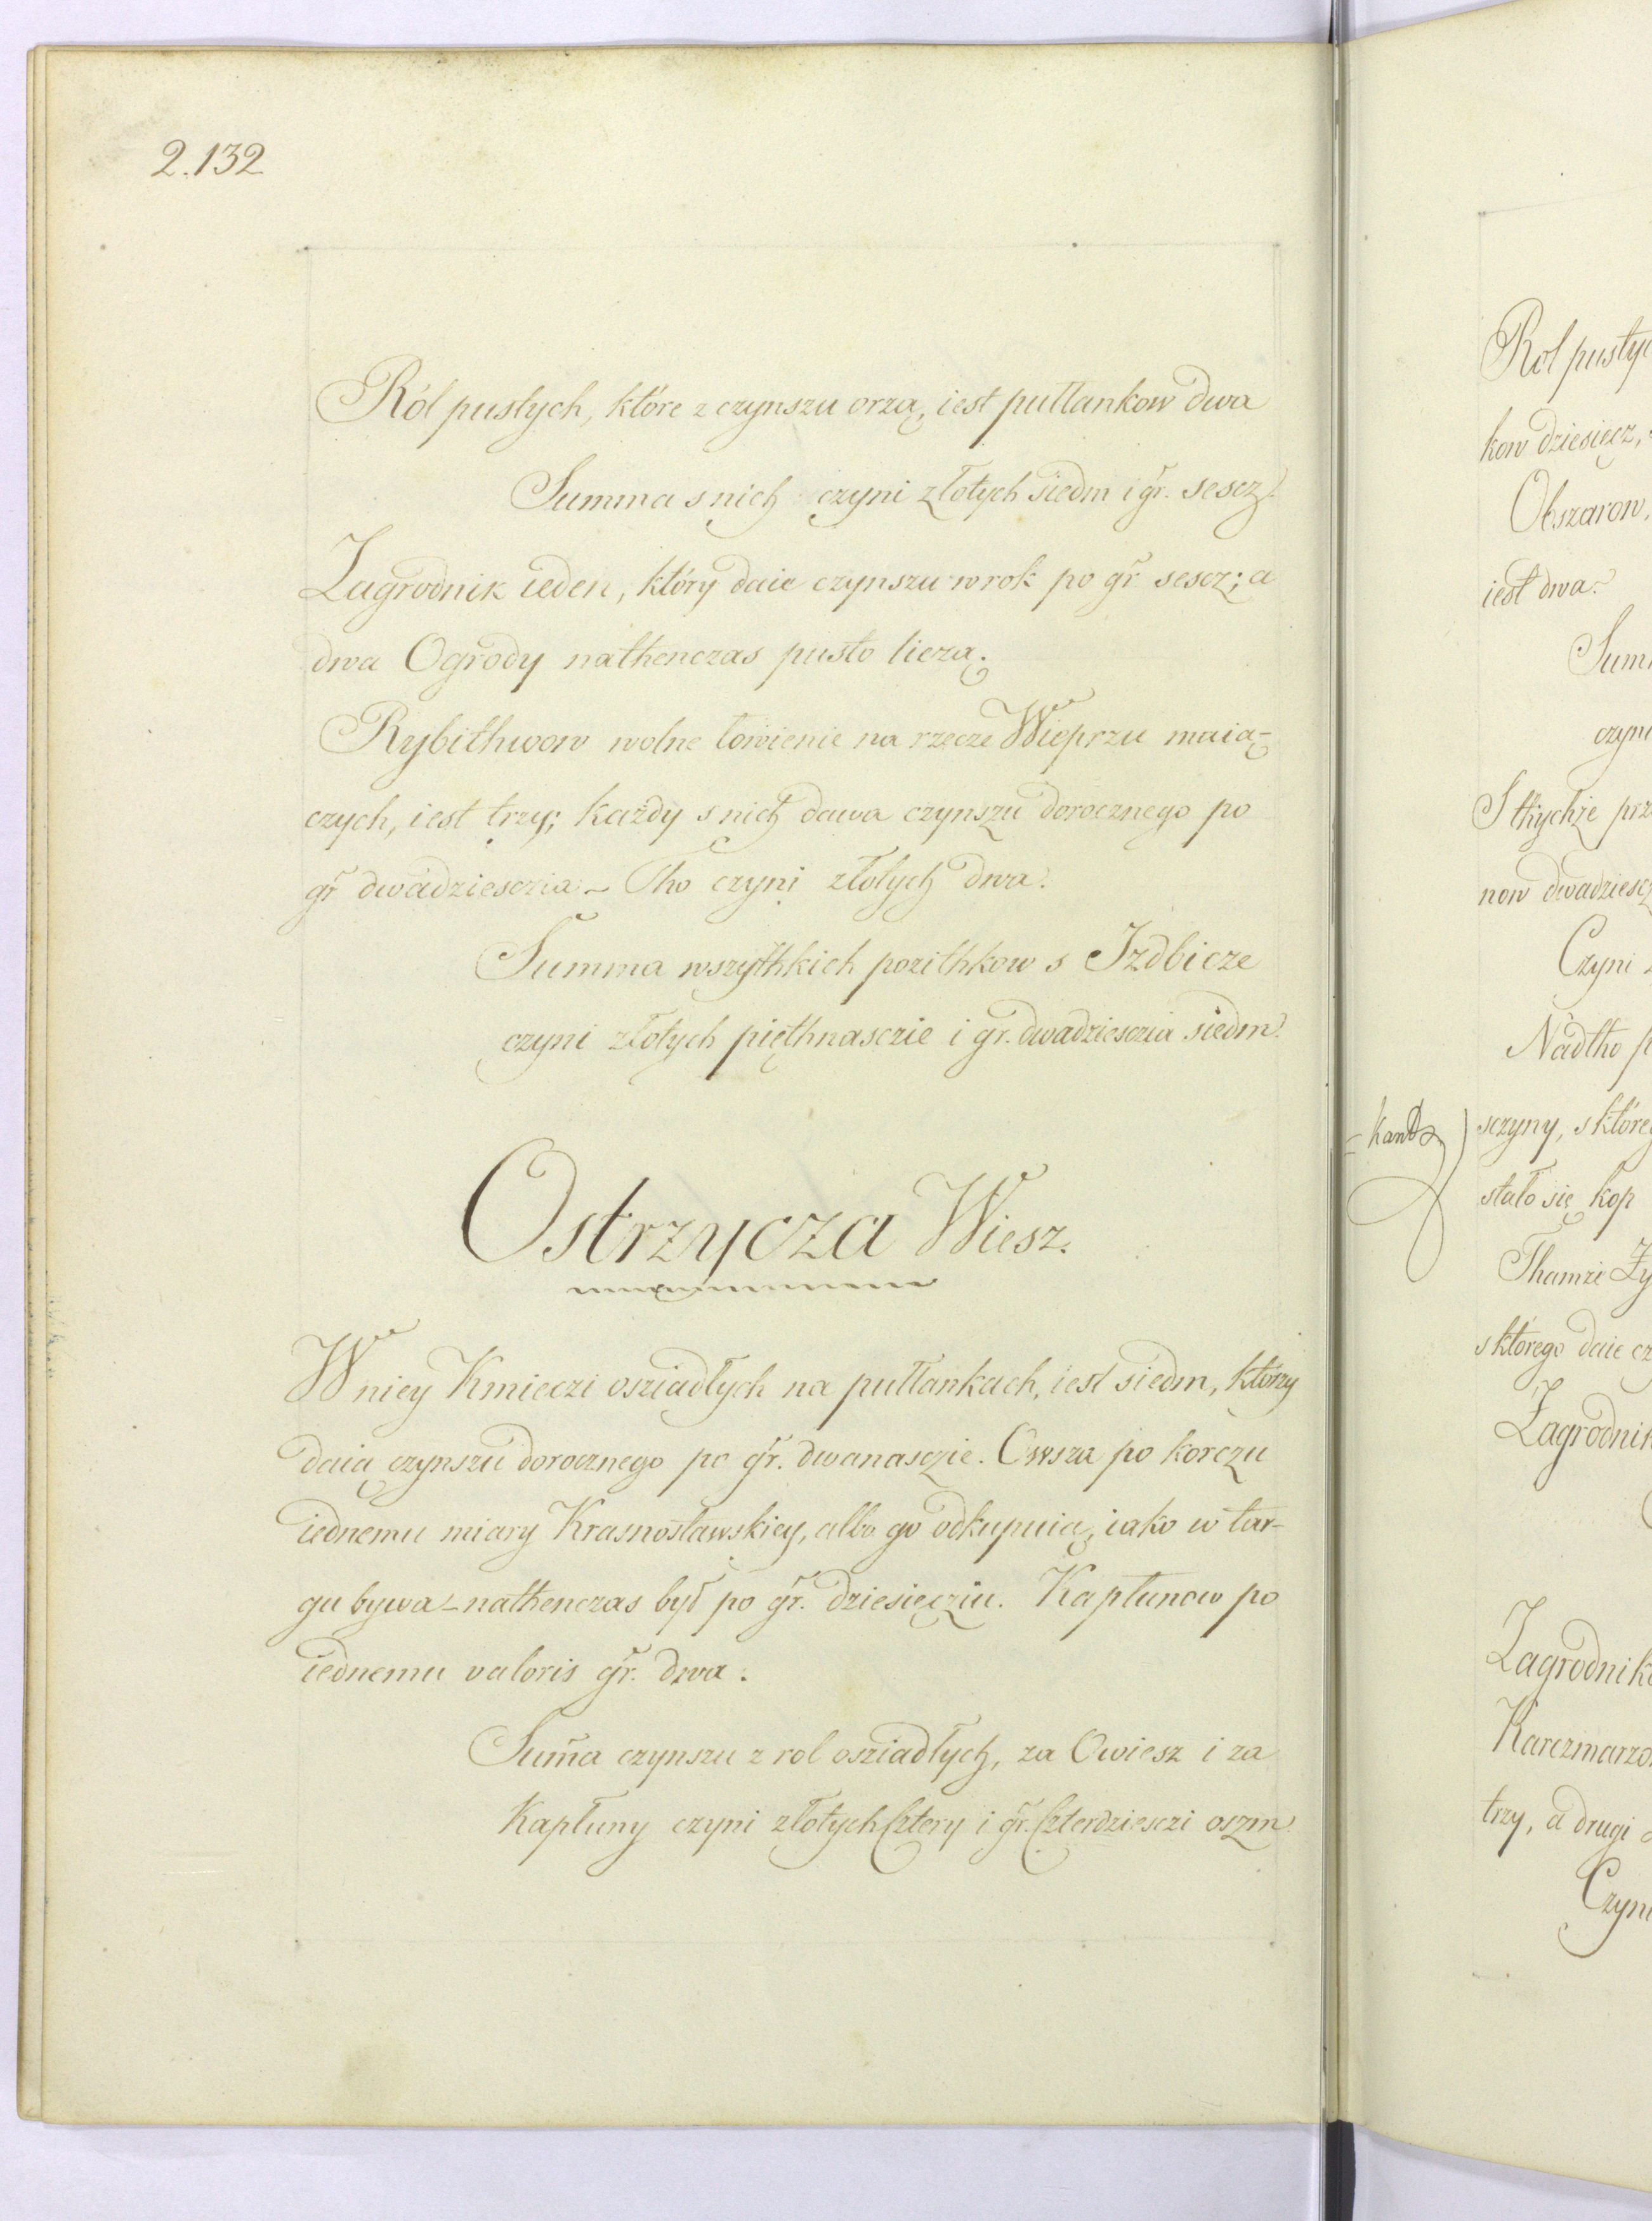 2.132
Ról pustych, które z czynszu orzą, iest pułłankow dwa
Summa s nich czyni złotych siedm i gr. sescz.
Zagrodnik ieden, który daie czynszu w rok po gr. sescz; a
dwa Ogrody nathenczas pusto lieżą.
Rybithwow wolne łowienie na rzecze Wieprzu maią-
czych, iest trzy; każdy s nich dawa czynszu dorocznego po
gr dwadziesczia – Tho czyni złotych dwa.
Summa wszythkich pozithkow s Izdbicze
czyni złotych pięthnasczie i gr. dwadziesczia siedm.
Ostrzycza Wiesz.
W niey Kmieczi osziadłych na pułłankach, iest siedm, którzy
daią czynszu dorocznego po gr. dwanasczie. Owsza po korczu
iednemu miary Krasnostawskiey, albo go odkupuią, iako w tar-
gu bywa – nathenczas był po gr. dziesięcziu. Kapłunow po
iednemu valoris gr. dwa.
Suma czynszu z rol osziadłych, za Owiesz i za
Kapłuny czyni złotych Cztery i gr. Czterdziesczi oszm.
Rol pustyc
kow dziesięcz,
Obszarow,
iest dwa.
Sum
czyni
S tkychże prz
now dwadziescz
Czyni
Nadtho p
sczyny, s które
stało się kop
Thamże Ży
s którego daie cz
Zagrodnik
Zagrodnik
Karczmarzo
trzy, a drugi
Czyni